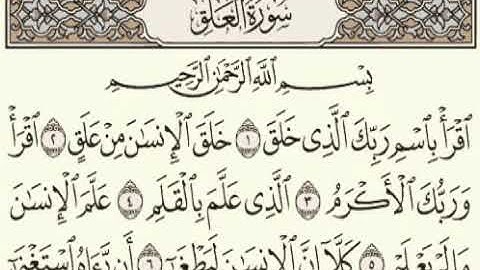 سُورَةُ الْعَلَقِ
بِسْمِ اللَّهِ الرَّحْمَٰنِ الرَّحِيمِ
اقْرَأْ بِاسْمِ رَبِّكَ الَّذِي خَلَقَ ١ خَلَقَ الْإِنسَانَ مِنْ عَلَقٍ ٢ اقْرَأْ
وَرَبُّكَ الْأَكْرَمُ ٣ الَّذِي عَلَّمَ بِالْقَلَمِ ٤ عَلَّمَ الْإِنسَانَ
مَا لَمْ يَعْلَمْ ٥ كَلَّا إِنَّ الْإِنسَانَ لَيَطْغَىٰ ٦ أَن رَّءَاهُ اسْتَغْنَىٰ